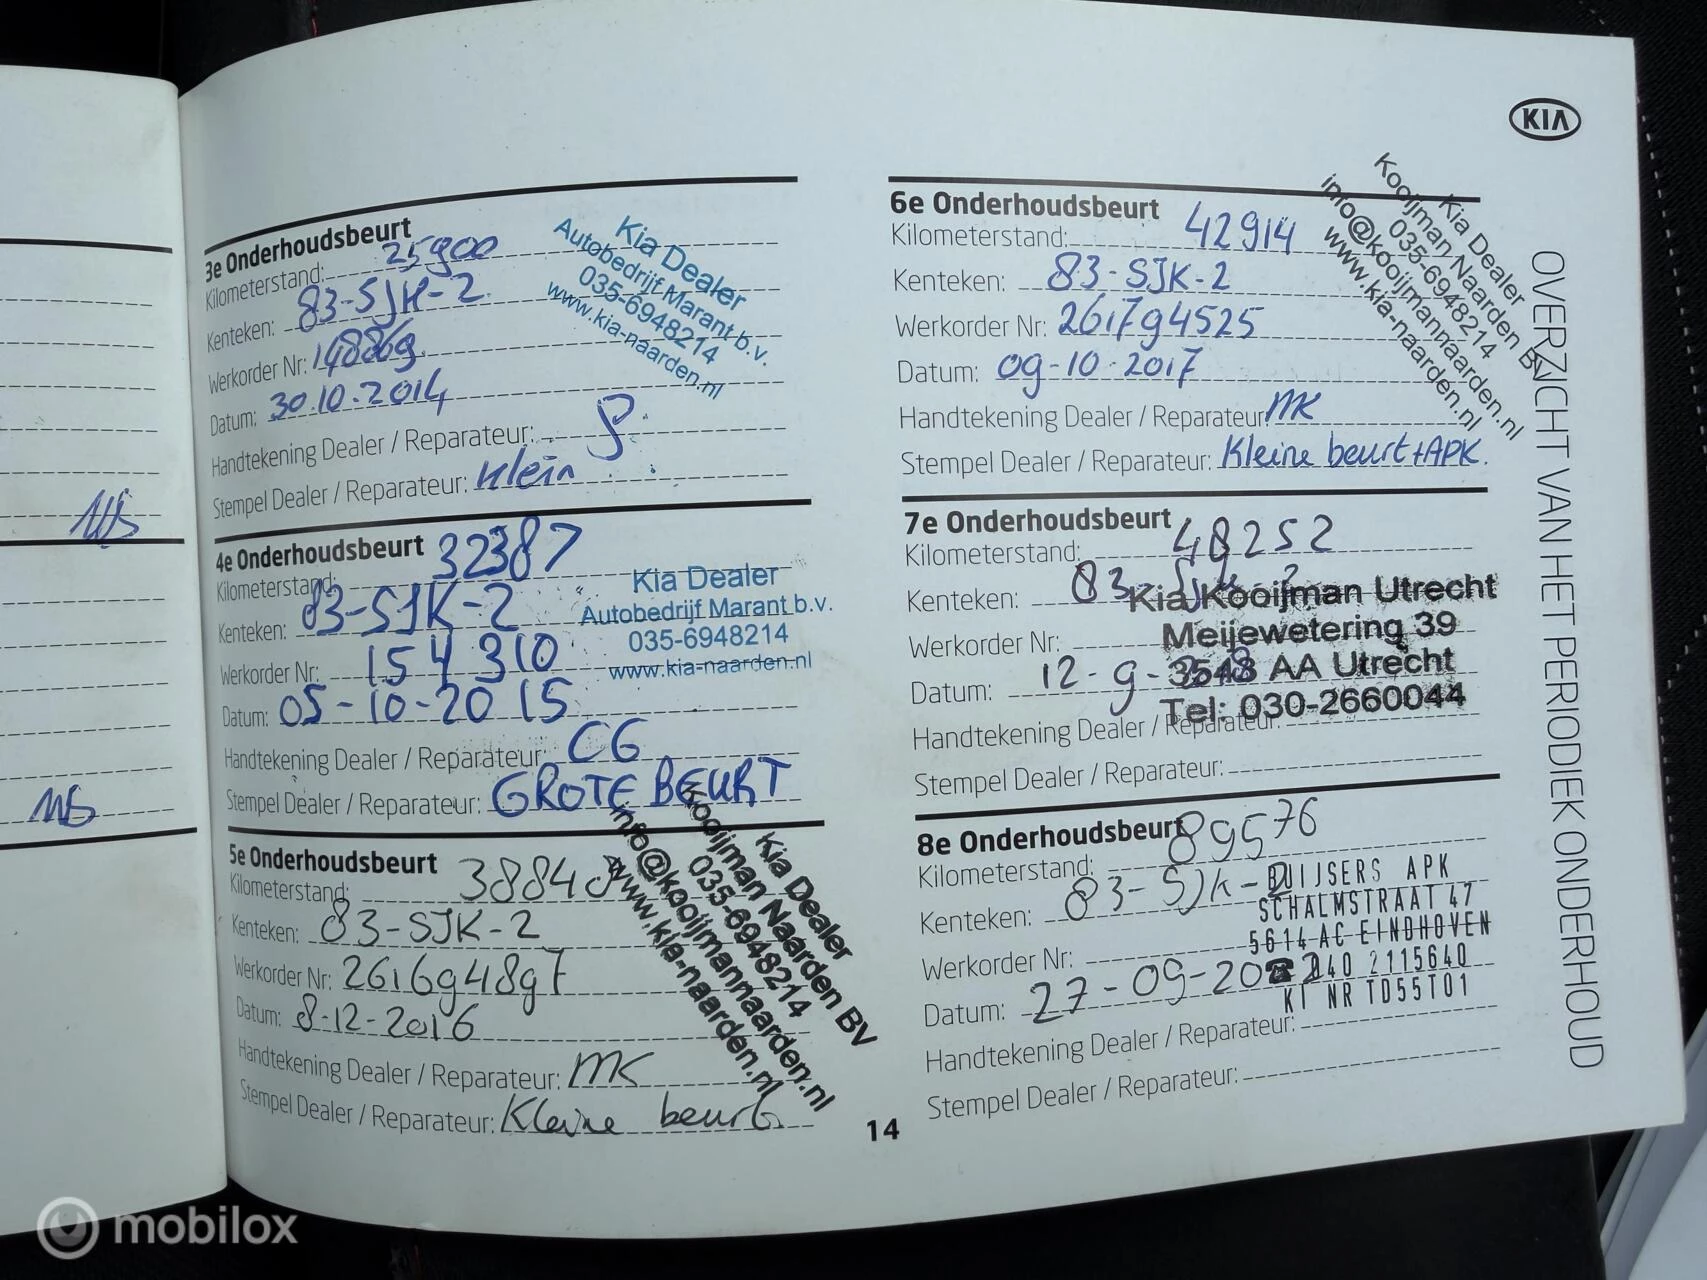 NB
NB
3e Onderhoudsbeurt
Kilometerstand: 25900
Kenteken: 83-SJK-2
Werkorder Nr: 148869
Datum: 30.10.2014
Handtekening Dealer / Reparateur:
Stempel Dealer / Reparateur: Klein
Kia Dealer
Autobedrijf Marant b.v.
035-6948214
www.kia-naarden.nl
4e Onderhoudsbeurt
Kilometerstand: 32387
Kenteken: 83-SJK-2
Werkorder Nr: 154310
Datum: 05-10-2015
Handtekening Dealer / Reparateur: CG
Stempel Dealer / Reparateur: GROTE BEURT
Kia Dealer
Autobedrijf Marant b.v.
035-6948214
www.kia-naarden.nl
5e Onderhoudsbeurt
Kilometerstand: 38848
Kenteken: 83-SJK-2
Werkorder Nr: 261694897
Datum: 8-12-2016
Handtekening Dealer / Reparateur: MK
Stempel Dealer / Reparateur: Kleine beurt
Kia Dealer
Kooijman Naarden BV
035-6948214
info@kooijmannaarden.nl
www.kia-naarden.nl
14
KIA
6e Onderhoudsbeurt
Kilometerstand: 42914
Kenteken: 83-SJK-2
Werkorder Nr: 261794525
Datum: 09-10-2017
Handtekening Dealer / Reparateur: MK
Stempel Dealer / Reparateur: Kleine beurt + APK.
Kia Dealer
Kooijman Naarden BV
035-6948214
info@kooijmannaarden.nl
www.kia-naarden.nl
7e Onderhoudsbeurt
Kilometerstand: 48252
Kenteken: 83-SJK-2
Werkorder Nr:
Datum: 12-9-2018
Handtekening Dealer / Reparateur:
Stempel Dealer / Reparateur:
Kia Kooijman Utrecht
Meijewetering 39
3543 AA Utrecht
Tel: 030-2660044
8e Onderhoudsbeurt
Kilometerstand: 89576
Kenteken: 83-SJK-2
Werkorder Nr:
Datum: 27-09-202
Handtekening Dealer / Reparateur:
Stempel Dealer / Reparateur:
BUIJSERS APK
SCHALMSTRAAT 47
5614 AC EINDHOVEN
☎ 040 2115640
KI NR TD55T01
OVERZICHT VAN HET PERIODIEK ONDERHOUD
mobilox